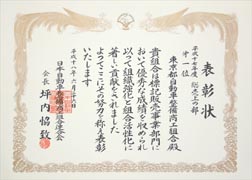 表彰状
平成十七年度 総売上の部
第一位
東京都自動車整備商工組合殿
貴組合は標記販売事業部門に
おいて優秀な成績を収められ
以って組織強化と組合活性化に
著しい貢献をされました
よってここにその努力を称え表彰
いたします
平成十八年六月二十八日
日本自動車整備商工組合連合会
会長 坪内恊致